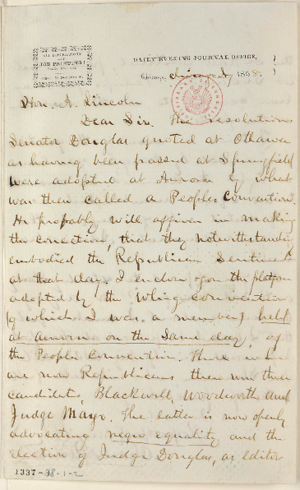 JOB PRINTING
DAILY EVENING JOURNAL OFFICE,
Chicago, 1858
Hon. A. Lincoln
Dear Sir The resolutions
Senator Douglas quoted at Ottawa
as having been passed at Springfield
were adopted at Aurora by what
was then called a Peoples Convention.
He probably will affirm in making
the correction, that they notwithstanding
embodied the Republican Sentiment
at that day. I enclose you the platform
adopted by the Whig convention
(of which I was a member) held
at Aurora on the Same day, of
the Peoples Convention. There were
are now Republicans then run three
candidates, Blackwell, Woodworth and
Judge Mayo. The latter is now openly
advocating negro equality and the
election of Judge Douglas, as editor
1337-38-1-2